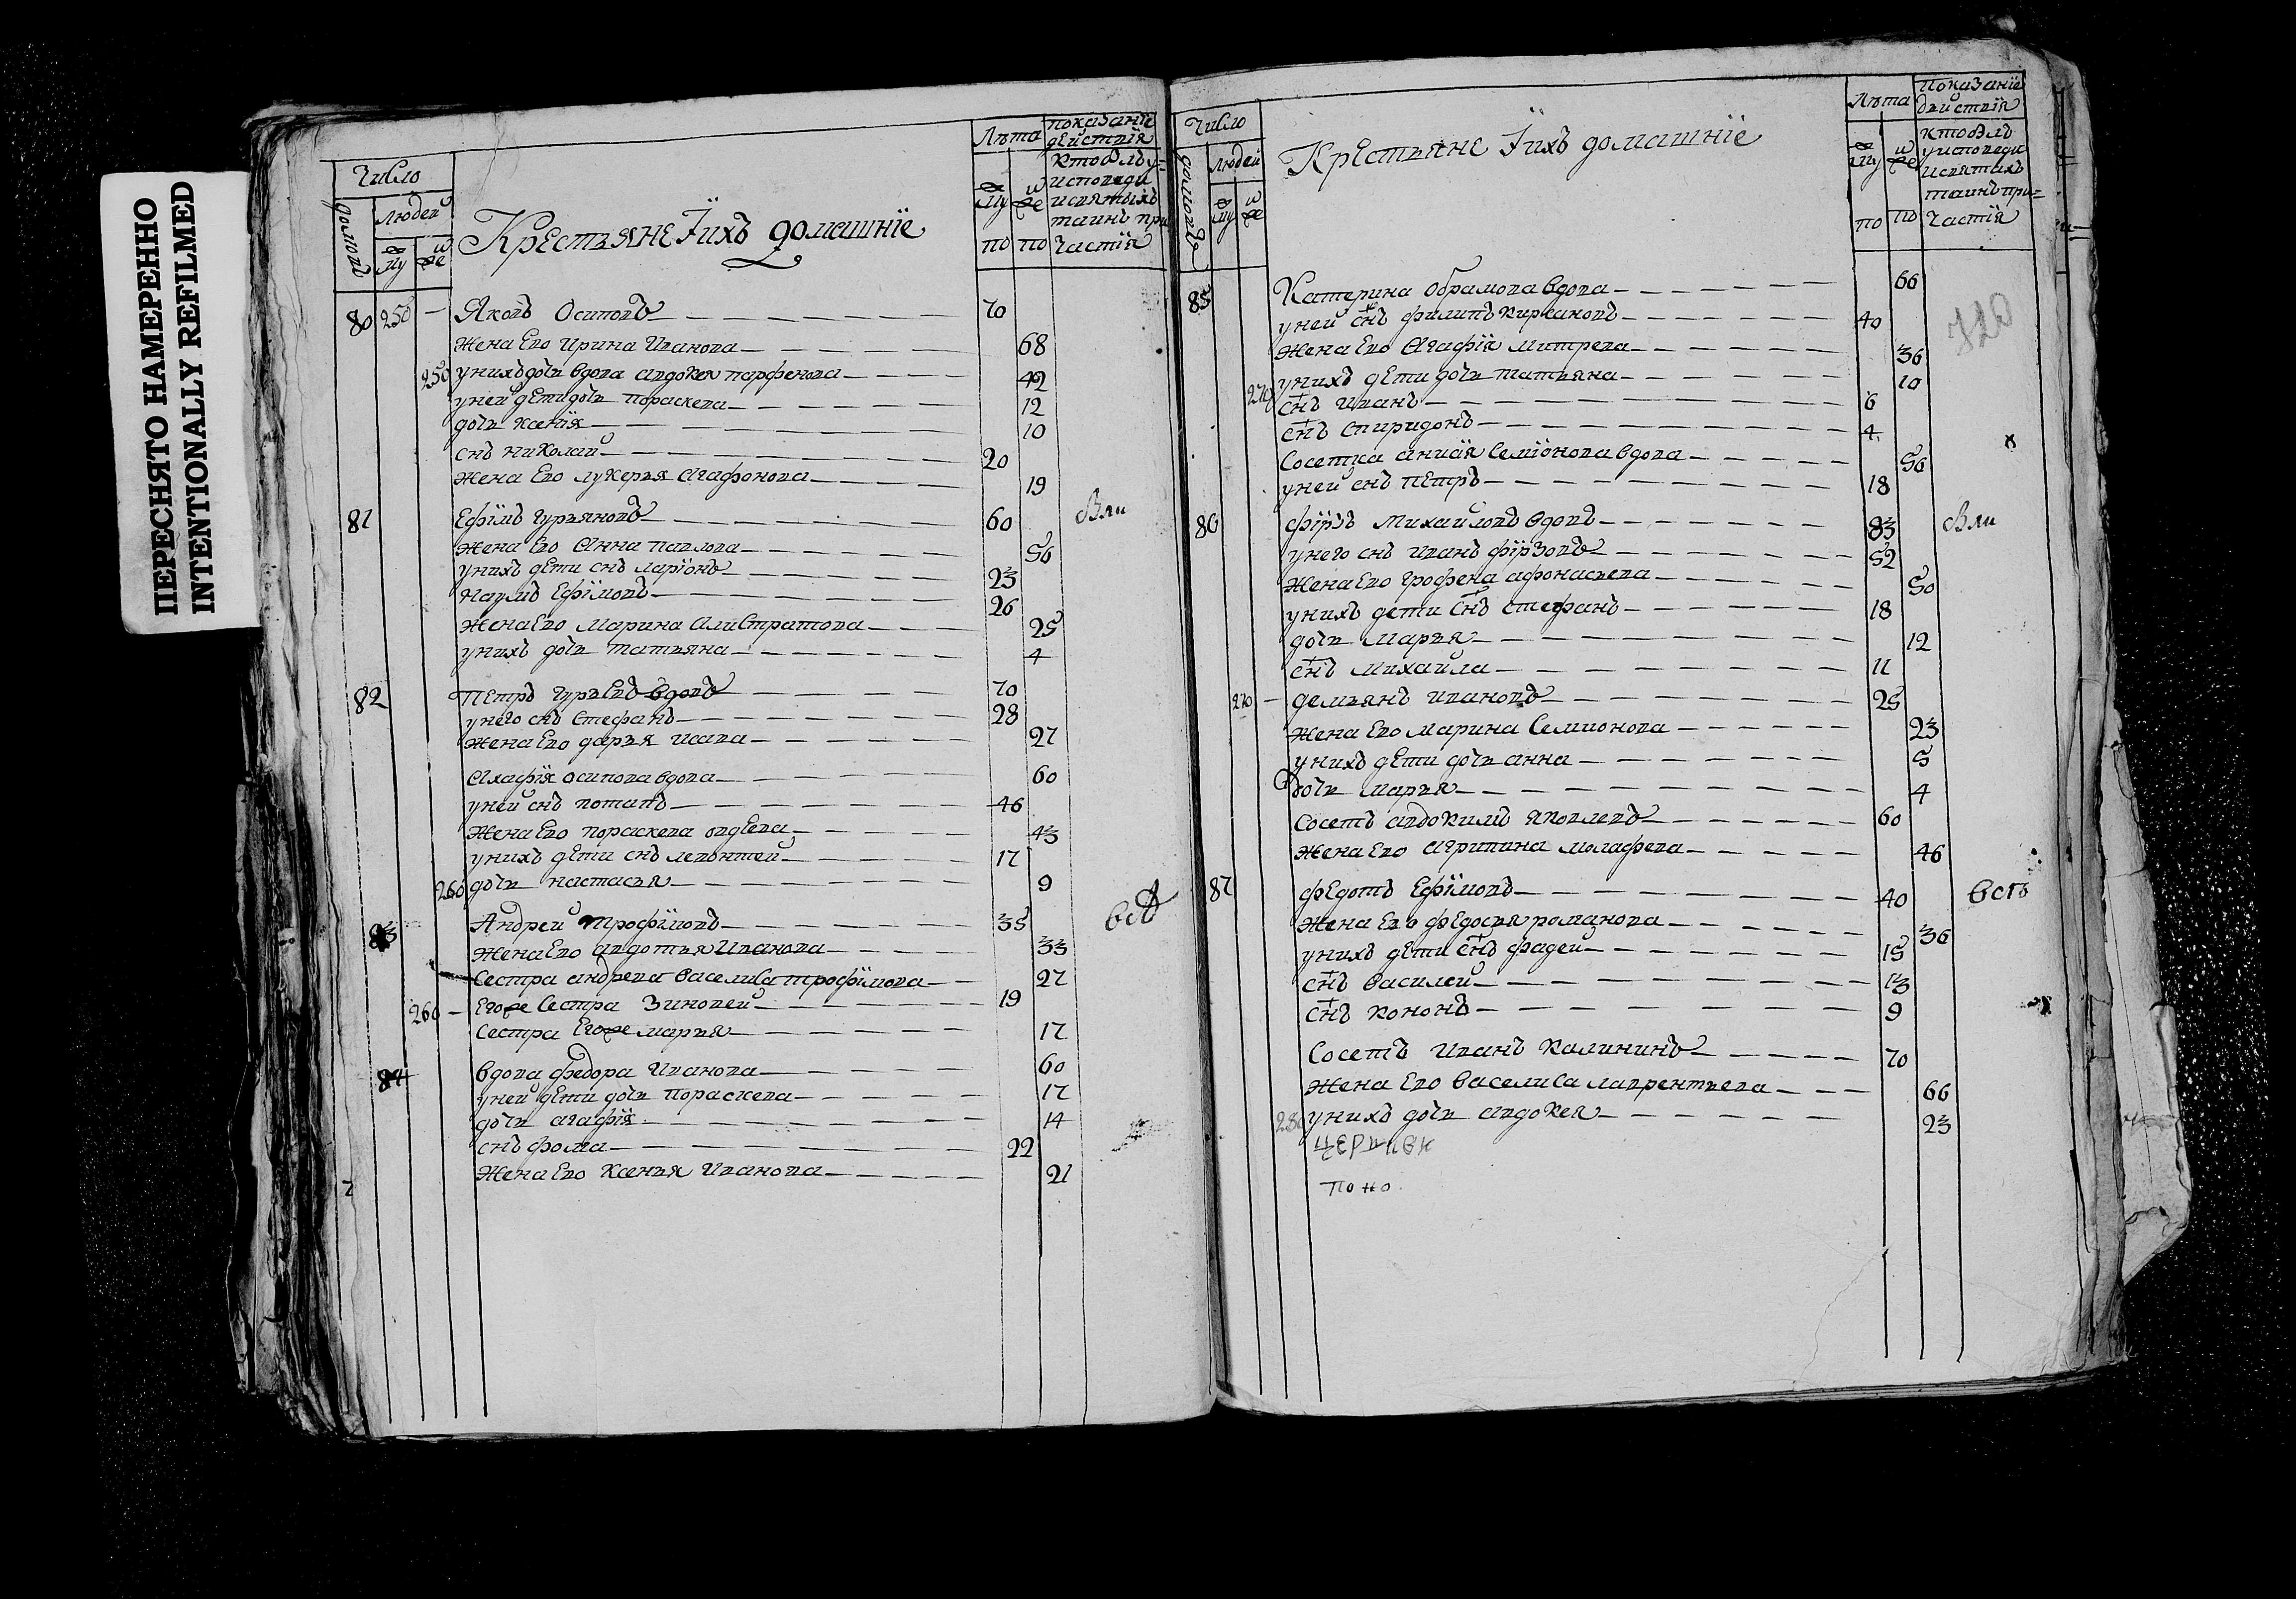 ПЕРЕСНЯТО НАМЕРЕННО
INTENTIONALLY REFILMED
Число
Лѣта
показанïе дѣйствïя
домовъ
людей
му
же
Крестьяне Їихъ домашнïе
му по
же по
кто былъ у исповеди и святыхъ таинъ причастïя
80 250 — Яковъ Осиповъ 70
Жена Ево Ирина Иванова 68
250 у нихъ дочь вдова авдокея парфенова 42
у ней дети дочь пораскева 12
дочь ксенïя 10
снъ николай 20
Жена Ево лукерья Агафонова 19
81 Ефïмъ гурьяновъ 60 Вли
Жена Ево Анна павлова 56
у нихъ дети снъ ларïонъ 23
наумъ Ефïмовъ 26
Жена Ево Марина Алистратова 25
у нихъ дочь татьяна 4
82 Петръ гурьевъ вдовъ 70
у него снъ Стефанъ 28
Жена Ево дарья исаева 27
Агафïя осипова вдова 60
у ней снъ потапъ 46
Жена Ево пораскева овдеева 43
у нихъ дети снъ левонтей 17
260 дочь настасья 9
83 Андрей Трофïмовъ 35 всѣ
Жена Ево авдотья Иванова 33
Сестра андрева Васелиса трофïмова 27
260 — Егоже Сестра Зиновей 19
Сестра Егоже марья 17
84 вдова федора Иванова 60
у ней дети дочь Пораскева 17
дочь агафïя 14
снъ фома 22
Жена Ево Ксенья Иванова 21
Число
Лѣта
показанïе дѣйствïя
домовъ
людей
му
же
Крестьяне Їихъ домашнïе
му по
же по
кто былъ у исповеди и святыхъ таинъ причастïя
85 Катерина Обрамова вдова 66
720
у ней снъ филипъ кирсановъ 40
Жена Ево Агафïя митрева 36
у нихъ дети дочь татьяна 10
270 снъ иванъ 6
снъ Спиридонъ 4
Сосетка анисïя Семïонова вдова 56
у ней снъ петръ 18
86 фïрзъ михайловъ вдовъ 83 Вли
у него снъ иванъ фïрзовъ 52
Жена Ево грофена афонасьева 50
у нихъ дети снъ стефанъ 18
дочь марья 12
снъ михайла 11
270 — демьянъ ивановъ 25
Жена Ево марина Семионова 23
у нихъ дети дочь анна 5
дочь марья 4
Сосетъ авдокимъ яковлевъ 60
Жена Ево Агрипина малафева 46
87 федотъ Ефïмовъ 40 всѣ
Жена Ево федосья романова 36
у нихъ дети снъ фадей 15
снъ василей 13
снъ кононъ 9
Сосетъ иванъ калининъ 70
Жена Ево Васелиса лаврентьева 66
280 у нихъ дочь авдокея 23
по но